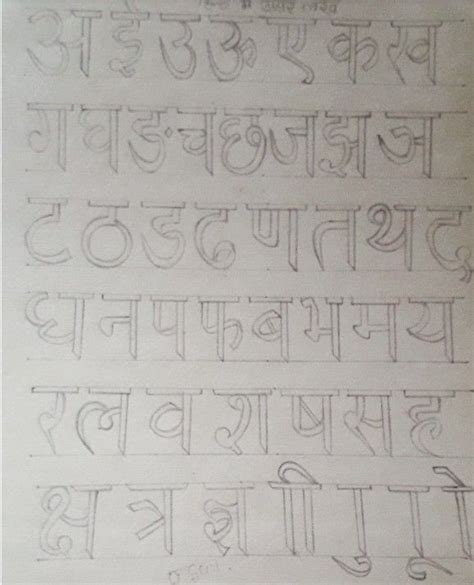 अ ई उ ऊ ए क ख
ग घ ङ च छ ज झ ञ
ट ठ ड ढ ण त थ द
ध न प फ ब भ म य
र ल व श ष स ह
क्ष त्र ज्ञ ा ी ु ू ो